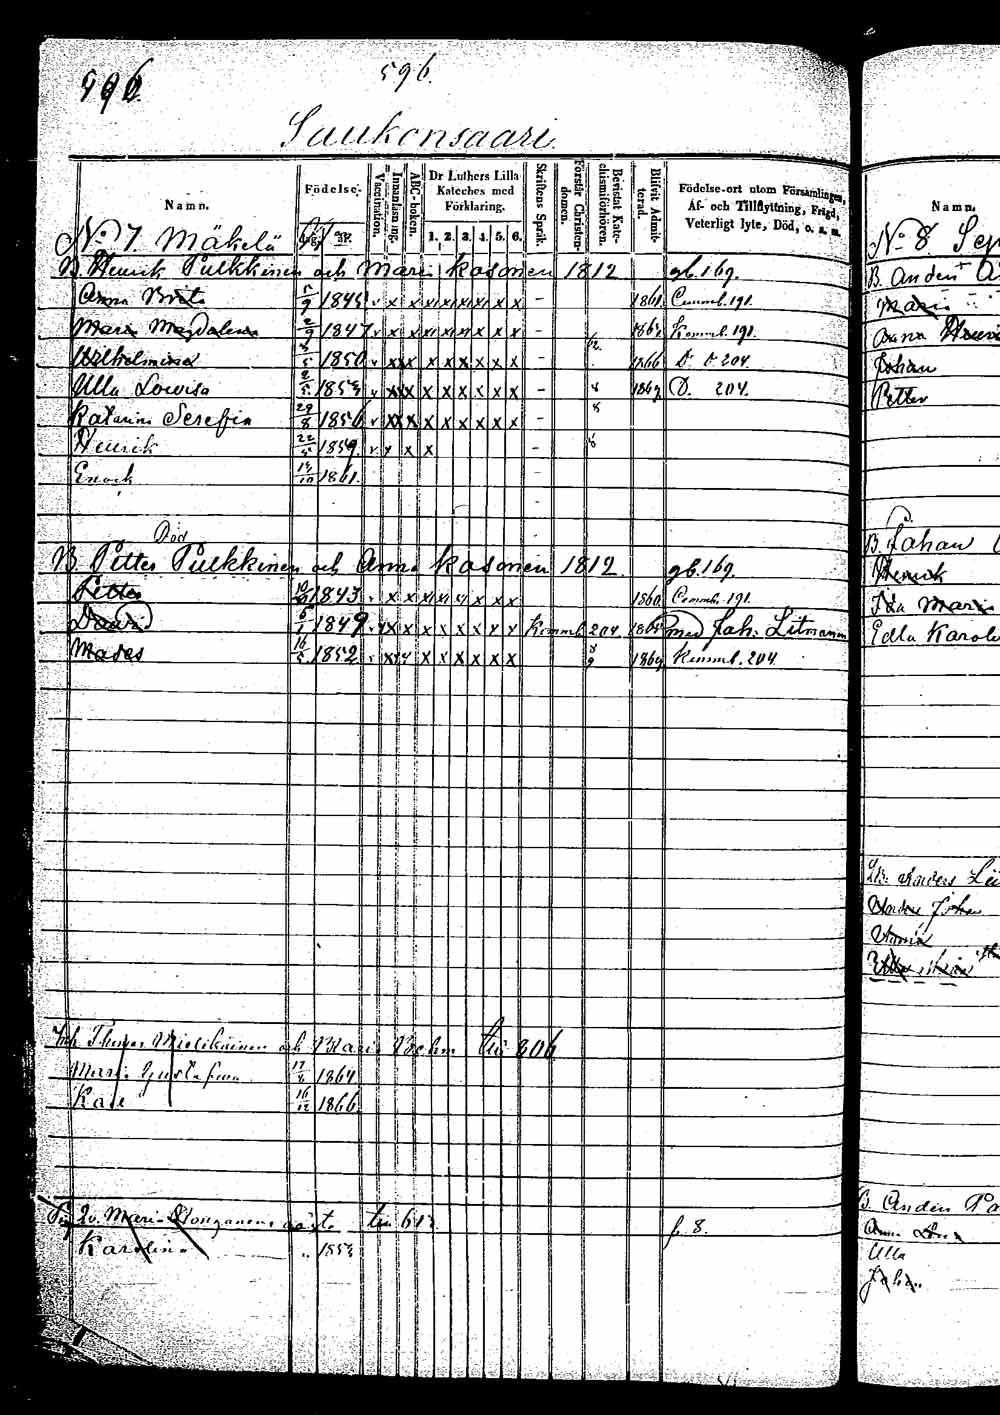 596.
596.
Saukonsaari.
Namn.
Födelse-
Vaccination.
Innanläsning.
ABC-boken.
Dr Luthers Lilla Kateches med Förklaring.
1. 2. 3. 4. 5. 6.
Skriftens Språk.
Förstår Christendomen.
Bevistat Katechismiförhören.
Blifvit Admitterad.
Födelse-ort utom Församlingen, Af- och Tillflyttning, Frigd, Veterligt lyte, Död, o. s. m.
No 7. Mäkelä
B. Henrik Pulkkinen och Maria Kasonen 1812 gb. 169.
Anna Brita 5/9 1845 v x x x x x x x x – 1861 Commb. 191.
Maria Magdalena 2/9 1847 v x x x x x x x x – 1862 Kommb. 191.
Wilhelmina 1850 v x x x x x x x x 1866 D. 204.
Ulla Lowisa 1853 v x x x x x x x x – 8 1869 D. 204.
Katarina Sereffia 29/8 1856 v x x x x x x x x – 8
Henrik 22/5 1859. v x x x – 8
Enock 13/10 1861. –
Död
B. Petter Pulkkinen och Anna Kasonen 1812. gb. 169.
Petter 1843 v x x x x x x x x 1860 Commb. 191.
David 1849 v x x x x x x x x Kommb 204. 1865 med Joh. Litmanen
Moses 16/5 1852 v x x x x x x x x 8/9 1869 Kommb. 204.
Inh. Thomas Mielikäinen och Maria Behm 806
Maria Gustafva 17/8 1864
Kalle 16/12 1866
Maria 613 p. 8.
Karolina " 1853
Namn.
No 8
B. Anders
Maria
Anna
Johan
Petter
B. Johan
Henrik
Ida Maria
Edla Karoli
Anders
Anders Johan
Anna
B. Anders
Anna
Ulla
Johan